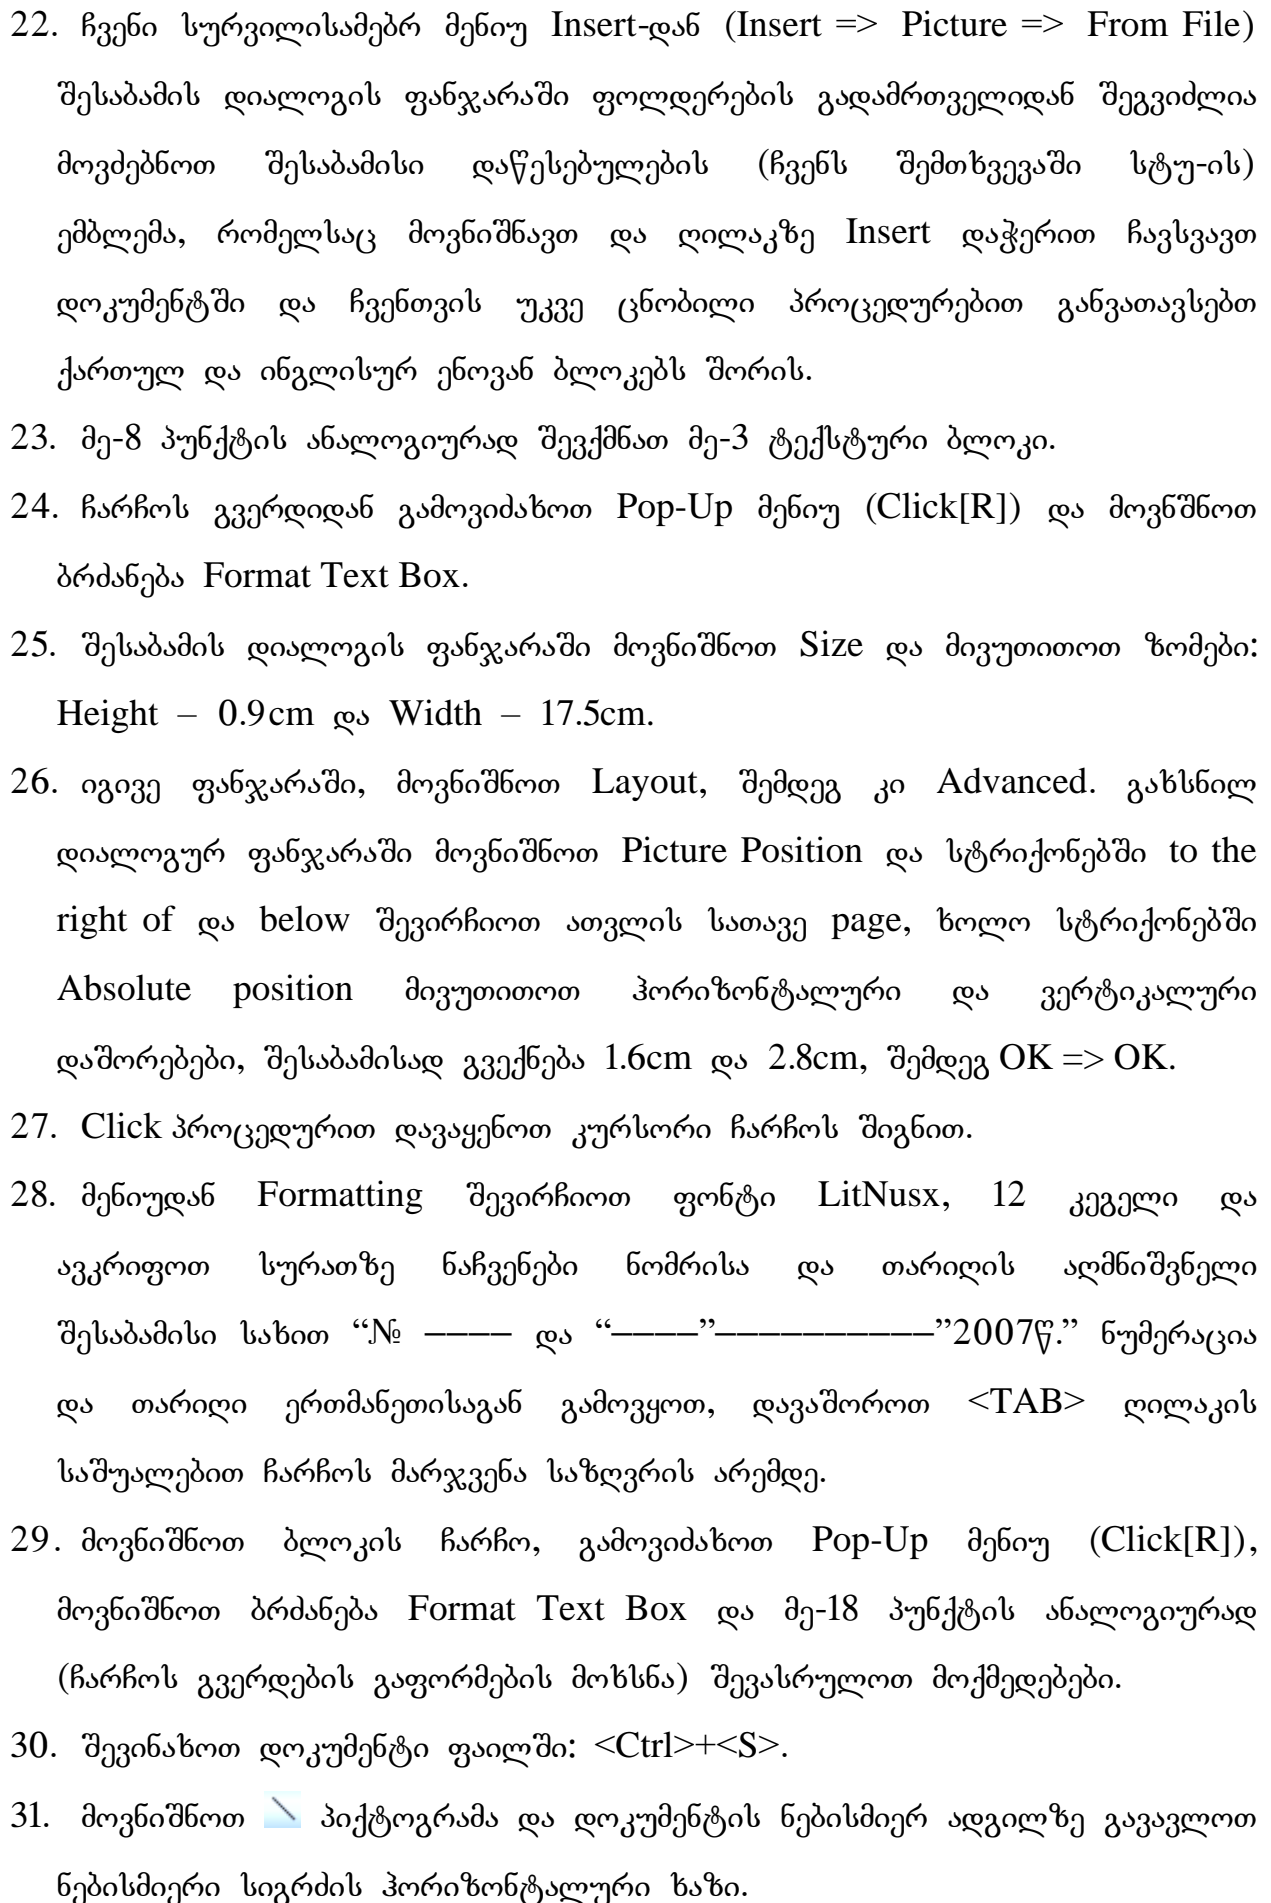 22. ჩვენი სურვილისამებრ მენიუ Insert-დან (Insert => Picture => From File)
შესაბამის დიალოგის ფანჯარაში ფოლდერების გადამრთველიდან შეგვიძლია
მოვძებნოთ შესაბამისი დაწესებულების (ჩვენს შემთხვევაში სტუ-ის)
ემბლემა, რომელსაც მოვნიშნავთ და ღილაკზე Insert დაჭერით ჩავსვავთ
დოკუმენტში და ჩვენთვის უკვე ცნობილი პროცედურებით განვათავსებთ
ქართულ და ინგლისურ ენოვან ბლოკებს შორის.
23. მე-8 პუნქტის ანალოგიურად შევქმნათ მე-3 ტექსტური ბლოკი.
24. ჩარჩოს გვერდიდან გამოვიძახოთ Pop-Up მენიუ (Click[R]) და მოვნშნოთ
ბრძანება Format Text Box.
25. შესაბამის დიალოგის ფანჯარაში მოვნიშნოთ Size და მივუთითოთ ზომები:
Height – 0.9cm და Width – 17.5cm.
26. იგივე ფანჯარაში, მოვნიშნოთ Layout, შემდეგ კი Advanced. გახსნილ
დიალოგურ ფანჯარაში მოვნიშნოთ Picture Position და სტრიქონებში to the
right of და below შევირჩიოთ ათვლის სათავე page, ხოლო სტრიქონებში
Absolute position მივუთითოთ ჰორიზონტალური და ვერტიკალური
დაშორებები, შესაბამისად გვექნება 1.6cm და 2.8cm, შემდეგ OK => OK.
27. Click პროცედურით დავაყენოთ კურსორი ჩარჩოს შიგნით.
28. მენიუდან Formatting შევირჩიოთ ფონტი LitNusx, 12 კეგელი და
ავკრიფოთ სურათზე ნაჩვენები ნომრისა და თარიღის აღმნიშვნელი
შესაბამისი სახით “№ –––– და “––––”––––––––––”2007წ.” ნუმერაცია
და თარიღი ერთმანეთისაგან გამოვყოთ, დავაშოროთ <TAB> ღილაკის
საშუალებით ჩარჩოს მარჯვენა საზღვრის არემდე.
29. მოვნიშნოთ ბლოკის ჩარჩო, გამოვიძახოთ Pop-Up მენიუ (Click[R]),
მოვნიშნოთ ბრძანება Format Text Box და მე-18 პუნქტის ანალოგიურად
(ჩარჩოს გვერდების გაფორმების მოხსნა) შევასრულოთ მოქმედებები.
30. შევინახოთ დოკუმენტი ფაილში: <Ctrl>+<S>.
31. მოვნიშნოთ პიქტოგრამა და დოკუმენტის ნებისმიერ ადგილზე გავავლოთ
ნებისმიერი სიგრძის ჰორიზონტალური ხაზი.